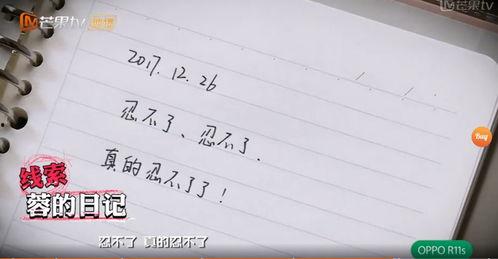 芒果tv 独播
芒果tv
2017.12.26
忍不了、忍不了.
真的忍不了了!
Buy
线索
蓉的日记
忍不了 真的忍不了
OPPO R11s